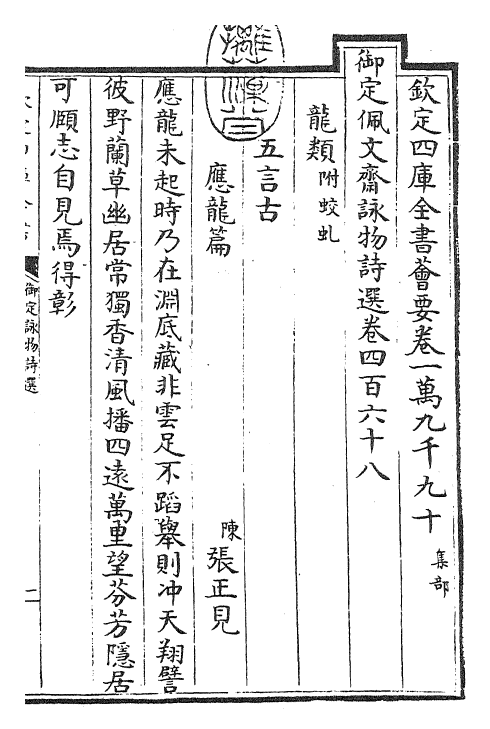 欽定四庫全書薈要卷一萬九千九十 集部
御定佩文齋詠物詩選卷四百六十八
龍類附蛟虬
五言古
應龍篇 陳張正見
應龍未起時乃在淵底藏非雲足不蹈舉則冲天翔譬
彼野蘭草幽居常獨香清風播四遠萬里望芬芳隱居
可頤志自見焉得彰
御定詠物詩選
二